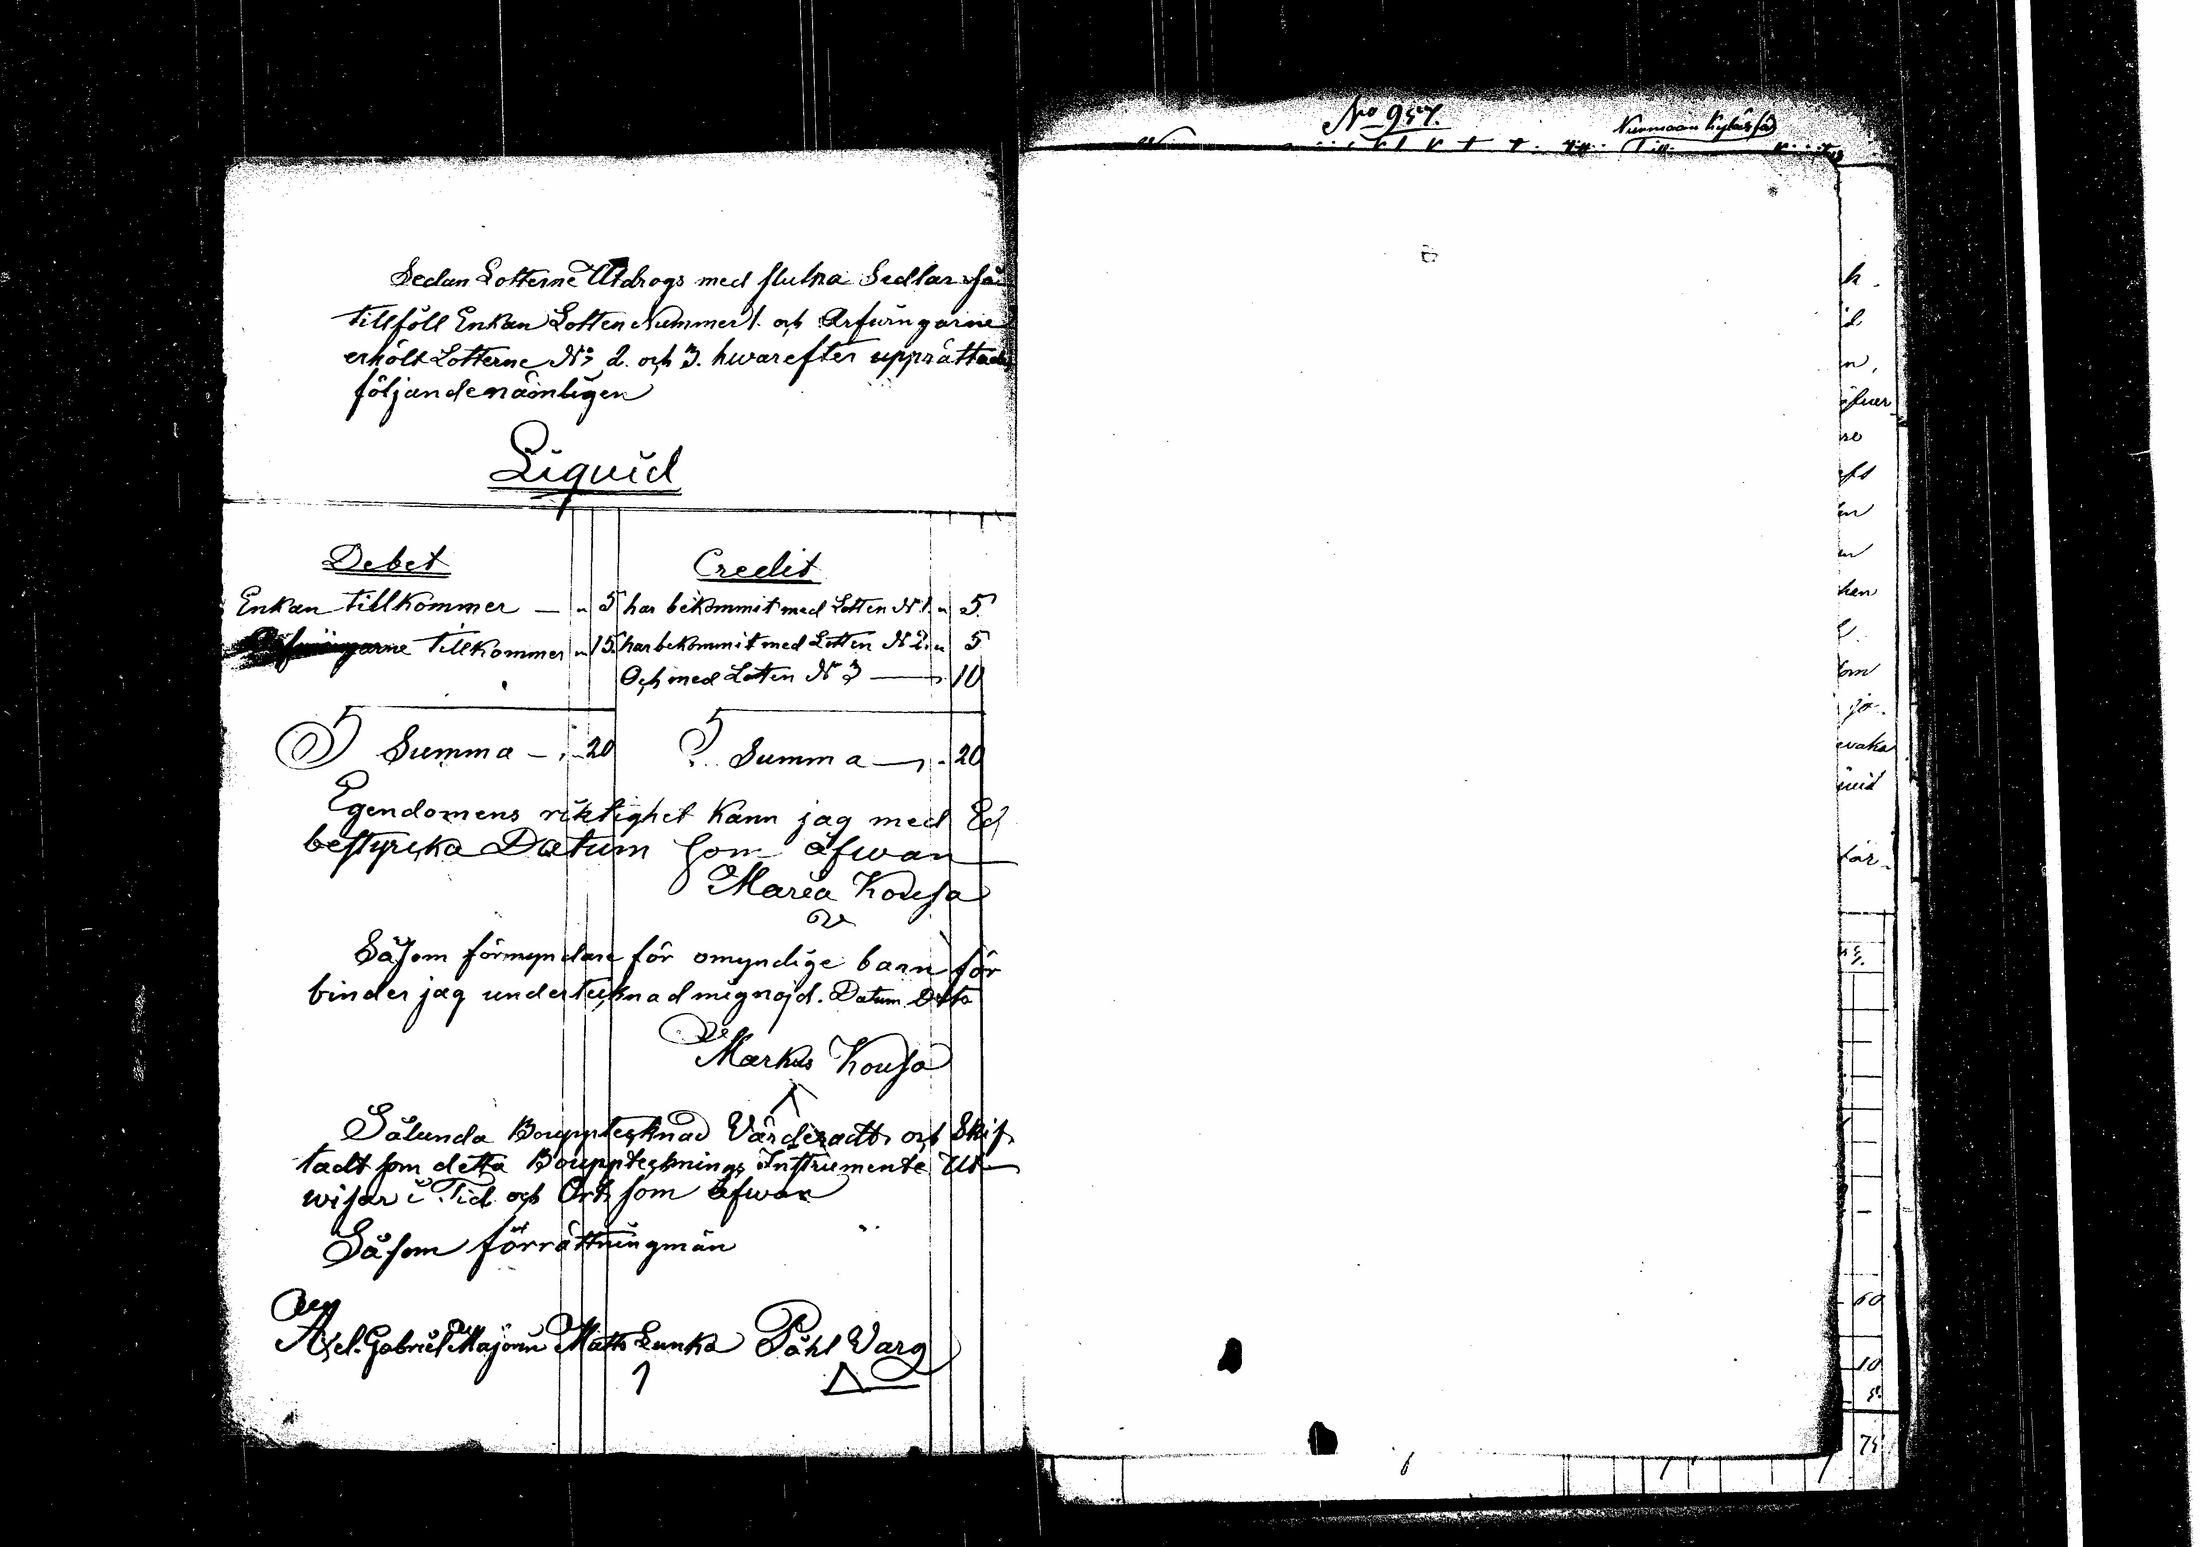 Sedan Lotterne Utdrogs med slutna Sedlar så
tillföll Enkan Lotten Nummer 1. och Arfwingarne
erhölt Lotterne No 2. och 3. hwarefter upprättades
följande nämligen
Liquid
Debet Credit
Enkan tillkommer — " 5 har bekommit med Lotten N 1. " 5
tillkommer " 15 har bekommit med Lotten N 2. " 5
Och med Lotten N 3 — 10
Summa — " 20 Summa — " 20
Egendomens riktighet kann jag med Ed
bestyrcka Datum som äfwan
Maria Kousa
Såsom förmyndare för omyndige barn för
binder jag undertecknad mig nöjd. Datum Detto
Markus Kousa
Sålunda Boupptecknad Värderadt och Skif
tadt som detta Boupptecknings Instrumente Ut
wisar i Tid och Ort som äfwan
Såsom förrättningmän
Axel Gabriel Majorin Matts Lunka Påhl Varg
No 957.
60
10
5.
75